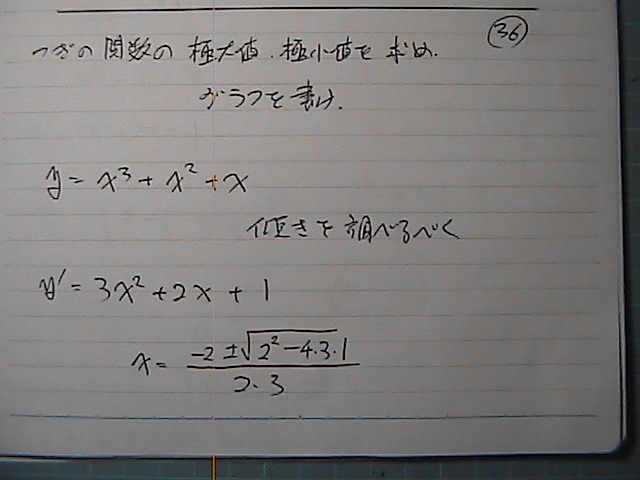 36
つぎの関数の極大値.極小値を求め.
グラフを書け.
y = x³ + x² + x
傾きを調べるべく
y' = 3x² + 2x + 1
x = (-2 ± √(2² - 4·3·1)) / (2·3)